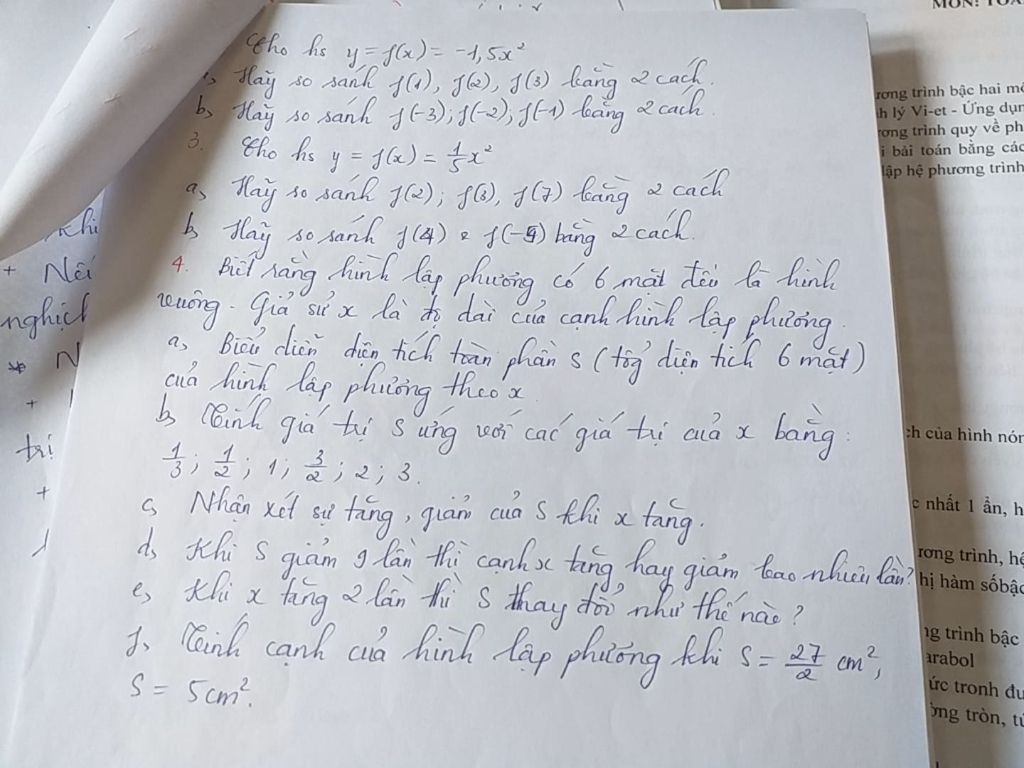 Cho hs y = f(x) = -1,5x²
Hãy so sánh f(1), f(2), f(3) bằng 2 cách.
b, Hãy so sánh f(-3); f(-2); f(-1) bằng 2 cách.
3. Cho hs y = f(x) = 1/5 x²
a, Hãy so sánh f(2); f(3), f(7) bằng 2 cách
b, Hãy so sánh f(4) & f(-5) bằng 2 cách.
4. Biết rằng hình lập phương có 6 mặt đều là hình
vuông. Giả sử x là độ dài của cạnh hình lập phương.
a, Biểu diễn diện tích toàn phần S (tổg diện tích 6 mặt)
của hình lập phương theo x
b, Tính giá trị S ứng với các giá trị của x bằng:
1/3; 1/2; 1; 3/2; 2; 3.
c, Nhận xét sự tăng, giảm của S khi x tăng.
d, Khi S giảm 9 lần thì cạnh x tăng hay giảm bao nhiêu lần?
e, Khi x tăng 2 lần thì S thay đổi như thế nào?
f, Tính cạnh của hình lập phương khi S = 27/2 cm²,
S = 5cm².
khi
+ Nếu
nghịch
* N
+
trị
+
MÔN: TOÁ
ương trình bậc hai mộ
h lý Vi-et - Ứng dụn
ương trình quy về ph
i bài toán bằng các
lập hệ phương trình
ch của hình nón
c nhất 1 ẩn, h
ương trình, hệ
hị hàm sốbậc
ng trình bậc
arabol
ức tronh đư
ờng tròn, tứ